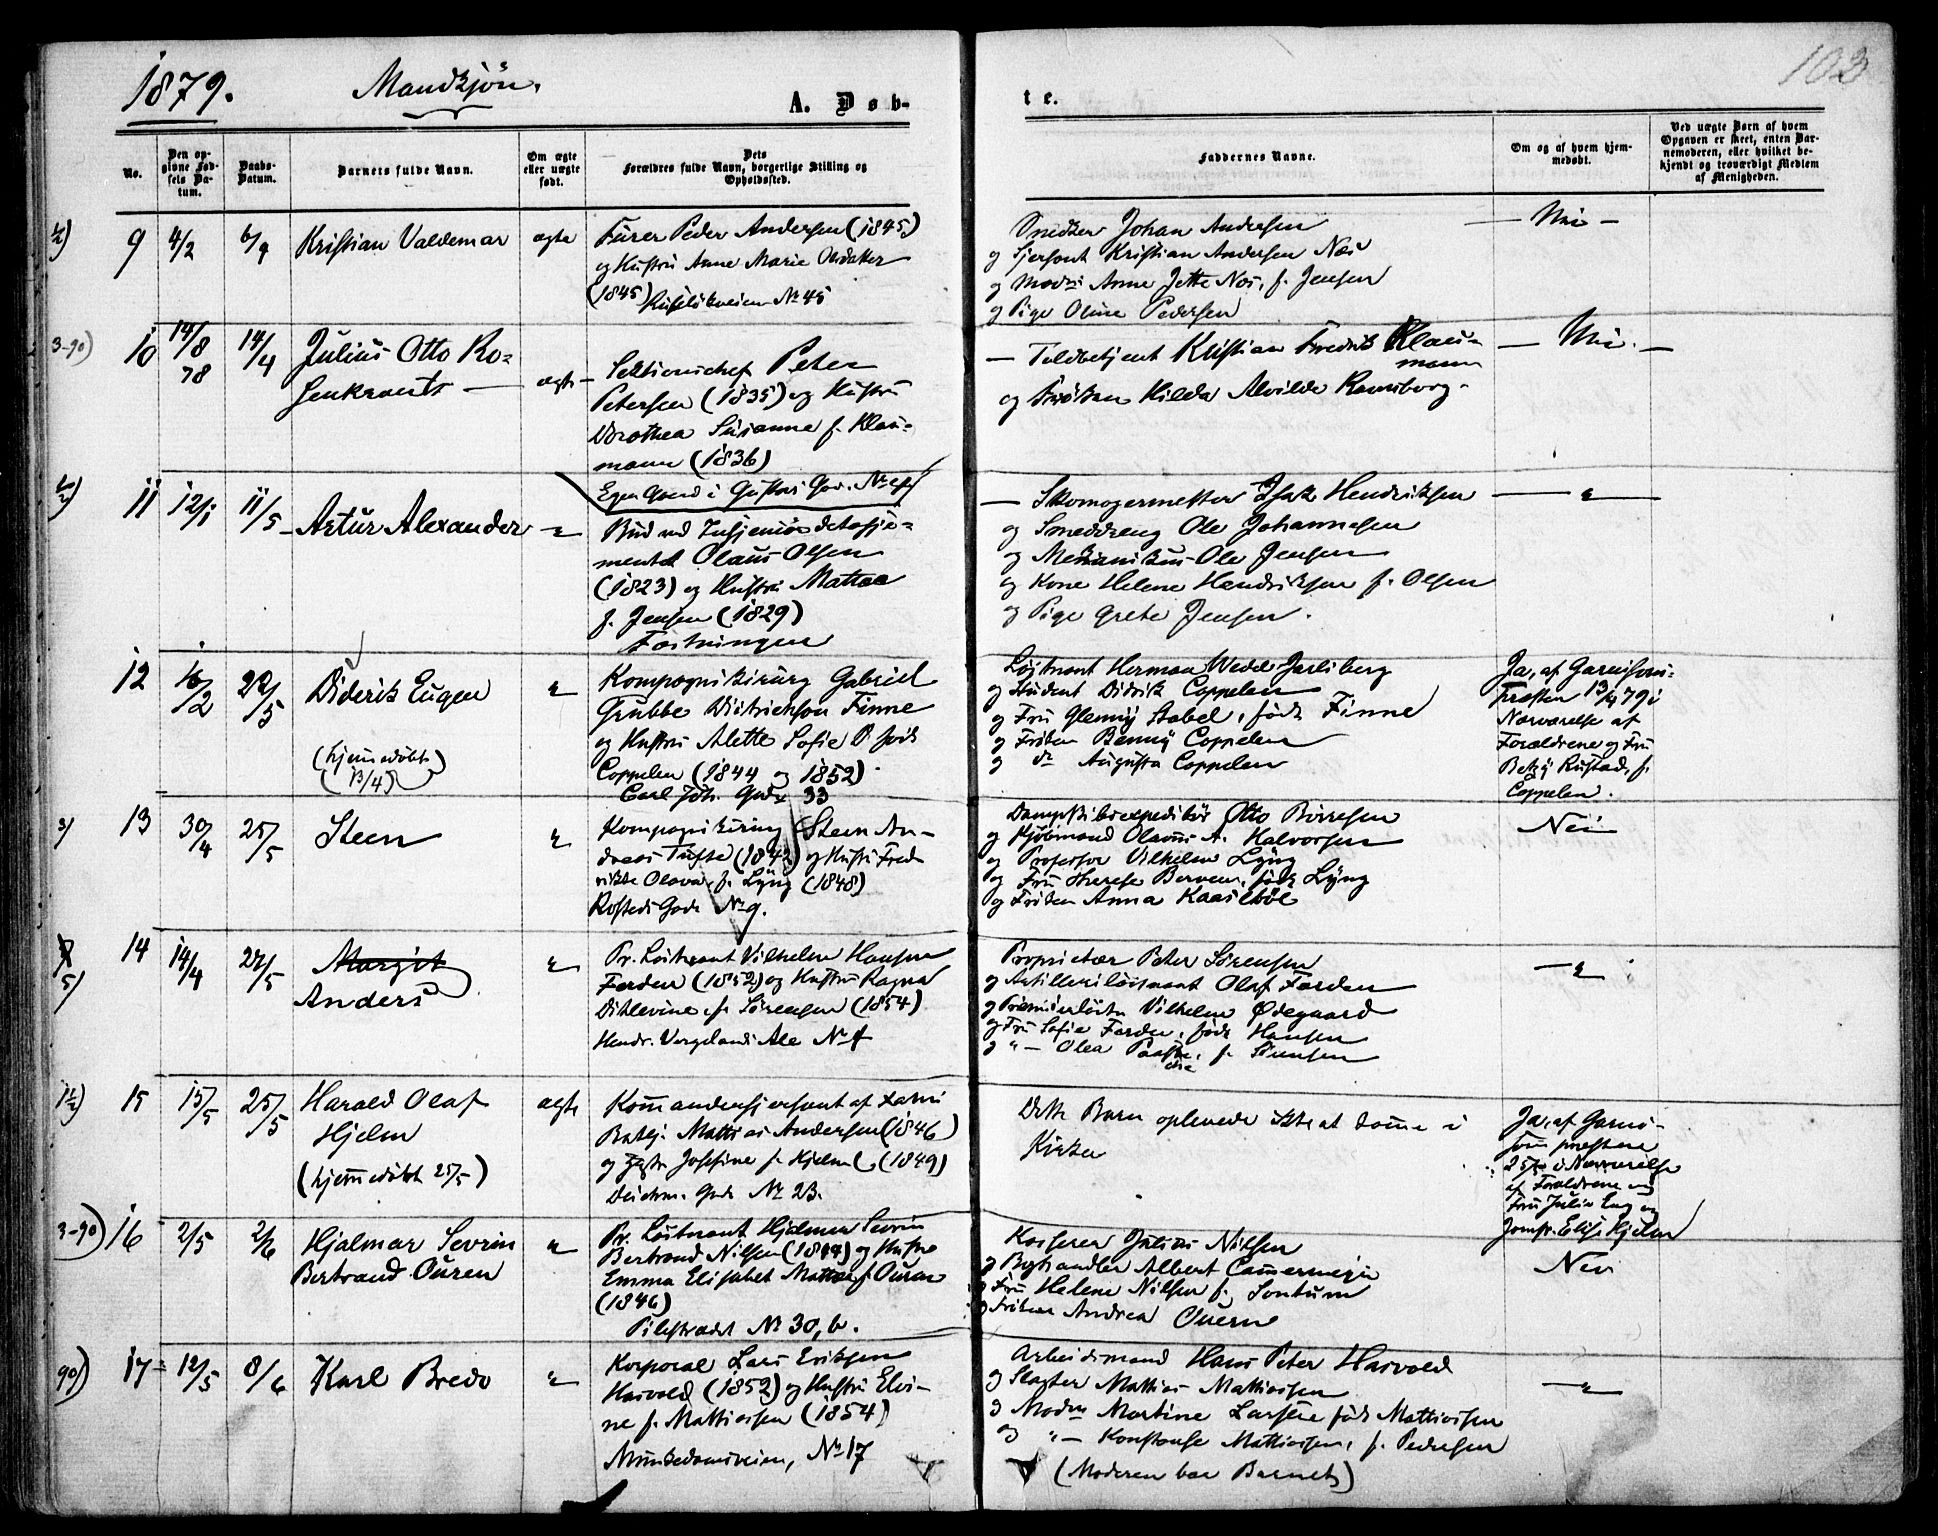 1879.
Mandkjön.
A. Døb-
te.
103
No.
Den op-
givne Fød-
sels Da-
tum.
Daabs-
Datum.
Barnets fulde Navn.
Om ægte
eller uægte
født.
Dets
Forældres fulde Navn, borgerlige Stilling og
Opholdssted.
Faddernes Navne.
Om og af hvem hjem-
medøbt.
Ved uægte Børn af hvem
Opgaven er skeet, enten Bar-
nemoderen, eller hvilket be-
kjendt og troværdigt Medlem
af Menigheden.
9 4/2 6/4 Kristian Valdemar ægte
Furer Peder Andersen (1845)
og Hustru Anne Marie
(1845) No 45
Snedker Johan Andersen
og Sjersant Kristian Andersen Næs
og Mad. Anne Jette Næs, f. Jensen
og Pige Oline Pedersen
Nei
3-90) 10 14/8 78 14/4 Julius Otto Ro-
senkrants ægte
Sektionschef Peter
Petersen (1835) og Hustru
Dorothea Susanne f. Klau-
mann (1836)
Egen Gaard i Gustavs Gd. No 4
Toldbetjent Kristian Fredrik Klau-
mann
og Frøken Hilda Alvilde Ramsborg
Nei.
11 12/1 11/5 Artur Alexander "
Bud ved Insjeniørdetasje-
mentet Olaus Olsen
(1823) og Hustru Mattea
f. Jensen (1829)
Fæstningen
Skomagermester Isak Hendriksen
og Smeddreng Ole Johannesen
og Mekanikus Ole Jensen
og Kone Helene Hendriksen f. Olsen
og Pige Grete Jensen.
"
12 16/2 22/5 Diderik Eugen "
(hjemmedöbt
13/4)
Kompagnikirurg Gabriel
Grubbe Didrickson Finne
og Hustru Alette Sofie D. født
Coppelen (1844 og 1852).
Carl Joh. Gade 33
Løjtnant Herman Wedel Jarlsberg
og Student Didrik Coppelen
og Fru Glenny Stabel, født Finne
og Frøken Benny Coppelen
og do Augusta Coppelen
Ja, af Garnisons-
Præsten 13/4 79 i
Nærværelse af
Forældrene og Fru
Betzy Rustad, f.
Coppelen.
3) 13 30/4 25/5 Steen "
Kompagnikirurg Steen An-
dreas Tufte (1842) og Hustru Fred-
rikke Olava f. Lyng (1848)
Rosteds Gade No 9.
Dampskibsexpeditör Otto Börresen
og Kjöbmand Olavus A. Halvorsen
og Professor Vilhelm Lyng
og Fru Therese Berven, född Lyng
og Fröken Anna Kaasböl
Nei
5) 14 14/4 27/5 Margit
Anders "
Pr. Löitnant Vilhelm Hansen
Forden (1852) og Hustru Ragna
Ditlevine, f. Sörensen (1854)
Hendr. Vergelands Ale No 4
Proprietær Peter Sörensen
og Artilleriløitnant Olaf Forden
og Premierløitn. Vilhelm Ødegaard
og Fru Sofie Forden, født Hansen
og " Olea Paaske, f. Sörensen
15 15/5 25/5 Harald Olaf
Hjelm
(hjemmedöbt 25/5)
ægte
Kommandersjersant af
Matti as Andersen (1846)
og Josefine f. Hjelm (1849)
Deichm. Gade No 23.
Dette Barn oplevede ikke at komme i
Kirken
Ja, af Garni-
sonspræsten
25/5 i Nærværelse
af Forældrene og
Fru Julie Eng og
Jomfr. Elise Hjelm
3-90) 16 2/5 2/6 Hjalmar Sevrin
Bertrand Ouren "
Pr. Löitnant Hjalmar Sevrin
Bertrand Nilsen (1844) og Hustru
Emma Elisabet Mattea f. Ouren
(1846)
Pilestrædet No 30, b.
Kasserer Julius Nilsen
og Boghandler Albert Cammermeyer
og Fru Helene Nilsen f. Sontum
og Fröken Andrea Ouren
Nei
90) 17 12/5 8/6 Karl Bredo "
Korporal Lars Eriksen
Hasvold (1852) og Hustru Elvi-
ne f. Mattiassen (1854)
Munkedamsveien, No 17
Arbeidsmand Hans Peter Hasvold
og Slagter Mattias Mattiassen
og Madm Martine Larsene født Mattiassen
og " Konstanse Mattiassen, f. Pedersen
(Moderen bar Barnet)
"